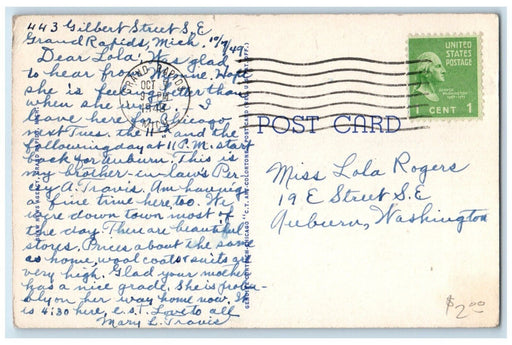 443 Gilbert Street S.E.
Grand Rapids, Mich. 10/7/49
Dear Lola; Was glad
to hear from Maxine. Hope
she is feeling better than
when she wrote. I
leave here for Chicago
next Tues. the 11th and the
following day at 11 P.M. start
back for Auburn. This is
my brother-in-law's Per-
cy A. Travis. Am having
fine time here too. We
were down town most of
the day. There are beautiful
stores. Prices about the same
as home, wool coats & suits are
very high. Glad your mother
has a nice grade. She is proba-
bly on her way home now. It
is 4:30 here, E.S.T. Love to all
Mary L. Travis
GRAND RAPIDS
OCT
PM
1949
MICH.
POST CARD
UNITED
STATES
POSTAGE
GEORGE
WASHINGTON
1 CENT 1
Miss Lola Rogers
19 E Street S.E
Auburn, Washington
$2.00